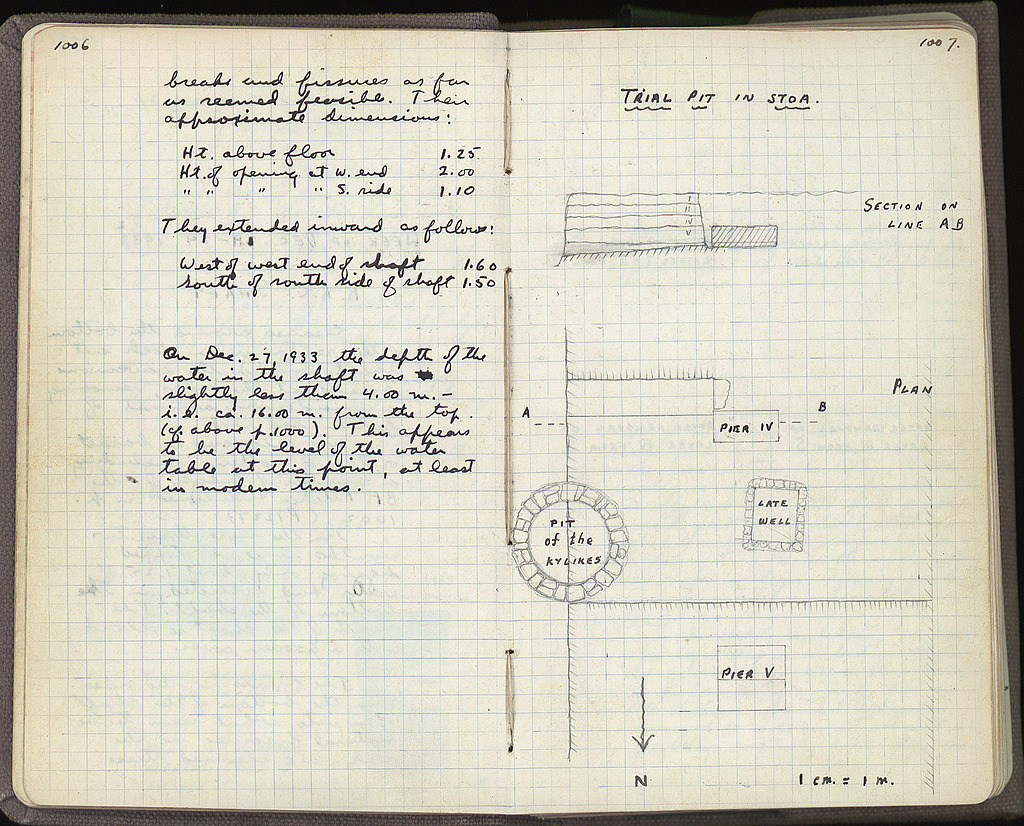 1006
breaks and fissures as far
as seemed feasible. Their
approximate dimensions:
Ht. above floor 1.25
Ht. of opening at w. end 2.00
" " " " S. side 1.10
They extended inward as follows:
West of west end of shaft 1.60
South of south side of shaft 1.50
On Dec. 27, 1933 the depth of the
water in the shaft was
slightly less than 4.00 m. –
i.e. ca. 16.00 m. from the top.
(cf. above p. 1000). This appears
to be the level of the water
table at this point, at least
in modern times.
1007.
TRIAL PIT IN STOA.
I
II
III
IV
V
SECTION ON
LINE AB
PLAN
A
B
PIER IV
LATE
WELL
PIT
of the
KYLIKES
PIER V
N
1 cm. = 1 m.